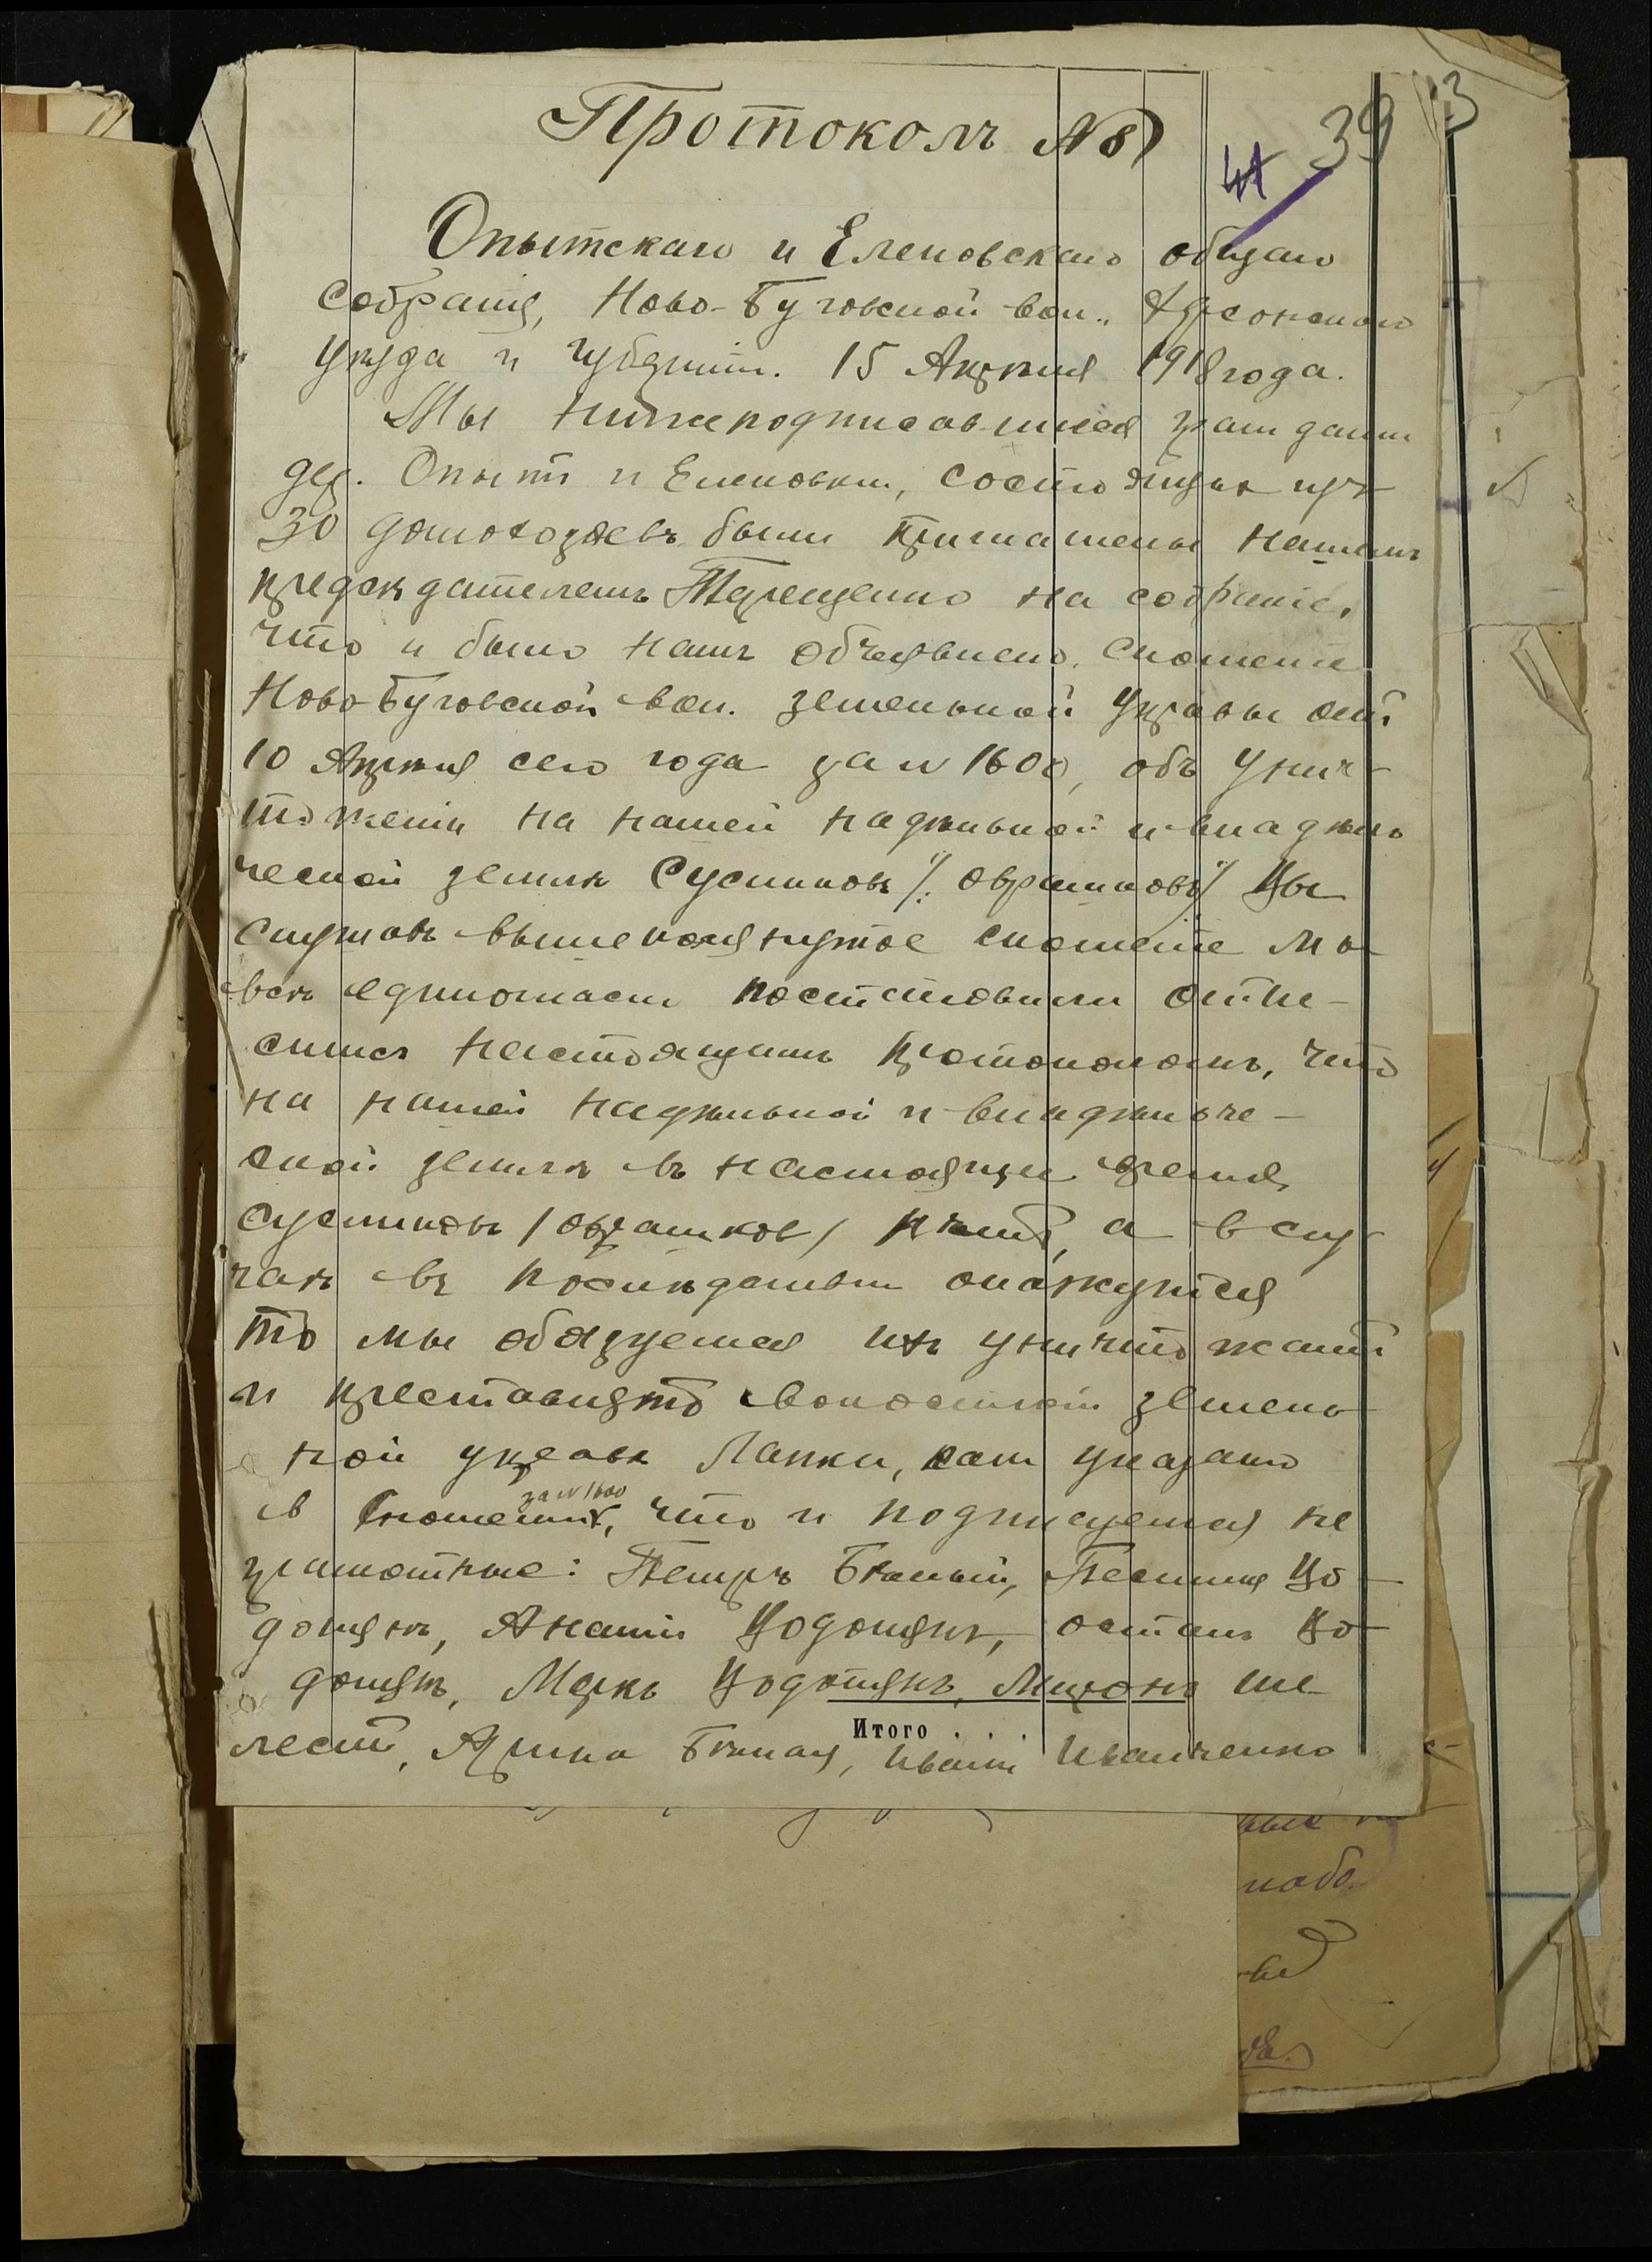 Протоколъ №8
39
41
3
Опытскаго и Еленовскаго общаго
Собранія, Ново-Буговской вол., Херсонскаго
уѣзда и губерніи. 15 Апрѣля 1918 года.
Мы нижеподписавшиеся граждани
дер. Опытъ и Еленовки, состоящихъ изъ
30 домохозяевъ были приглашены нашимъ
предсѣдателемъ Терещенко на собраніе,
что и было намъ объявлено, сношеніе
Ново-Буговской вол. земельной Управы отъ
10 Апрѣля сего года за № 1600, объ унич-
тоженіи на нашей надѣльной и владѣль
ческой землѣ Сусликовъ /. оврашковъ ./ Вы
слушавъ вышепомянутое сношеніе мы
всѣ единогласн постановили отне-
стись настоящимъ протоколомъ, что
на нашей надѣльной и владѣльче-
ской землѣ въ настоящее время
сусликовъ / оврашков / нѣтъ, а в слу-
чаѣ въ послѣдствіи окажутся
то мы обязуемся ихъ уничтожатъ
и преставлятъ волостной земель
ной управѣ Лапки, как указано
в Сношеніи, что и подписуемся не
за № 1600
грамотные: Петръ Бѣлый, Водо-
донянъ, Водо
Маркъ Миронъ Ше
лестъ, Бѣлая, Иванъ Иванченко
Итого . . .